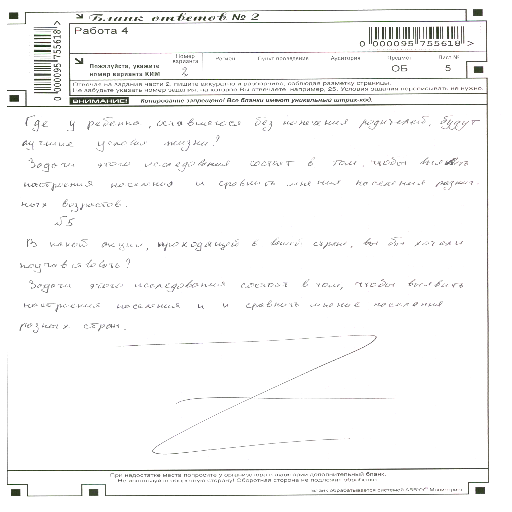 Бланк ответов № 2
Работа 4
0 000095 755618
0 000095 755618
Пожалуйста, укажите номер варианта КИМ
Номер варианта
2
Регион
Пункт проведения
Аудитория
Предмет
ОБ
Лист №
5
Отвечая на задания части 2, пишите аккуратно и разборчиво, соблюдая разметку страницы.
Не забудьте указать номер задания, на которое Вы отвечаете, например, 25. Условия задания переписывать не нужно.
ВНИМАНИЕ! Копирование запрещено! Все бланки имеют уникальный штрих-код.
Где у ребенка, оставшегося без попечения родителей, будут
лучшие условия жизни?
Задачи этого исследования состоит в том, чтобы выявить
настроения населения и сравнить мнения населения различ-
ных возрастов.
№5
В какой акции, проходящей в вашей стране, вы бы хотели
поучаствовать?
Задачи этого исследования состоит в том, чтобы выявить
настроения населения и и сравнить мнение населения
разных стран.
При недостатке места попросите у организатора в аудитории дополнительный бланк.
Не используйте обратную сторону! Оборотная сторона не подлежит обработке.